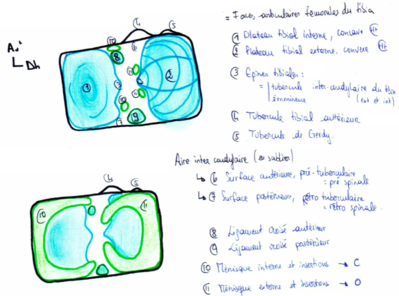 = Faces articulaires fémorales du tibia
① Plateau tibial interne, concave
② Plateau tibial externe, convexe
③ Epines tibiales :
= tubercule inter condylaire du tibia
éminence (ext et int)
④ Tubercule tibial antérieur
⑤ Tubercule de Gerdy
Aire inter condylaire (
↳ ⑥ Surface antérieure, pré-tuberculaire
= pré spinale
↳ ⑦ Surface postérieure, rétro tuberculaire
= rétro spinale
⑧ Ligament croisé antérieur
⑨ Ligament croisé postérieur
⑩ Ménisque interne et insertions → C
⑪ Ménisque externe et insertions → O